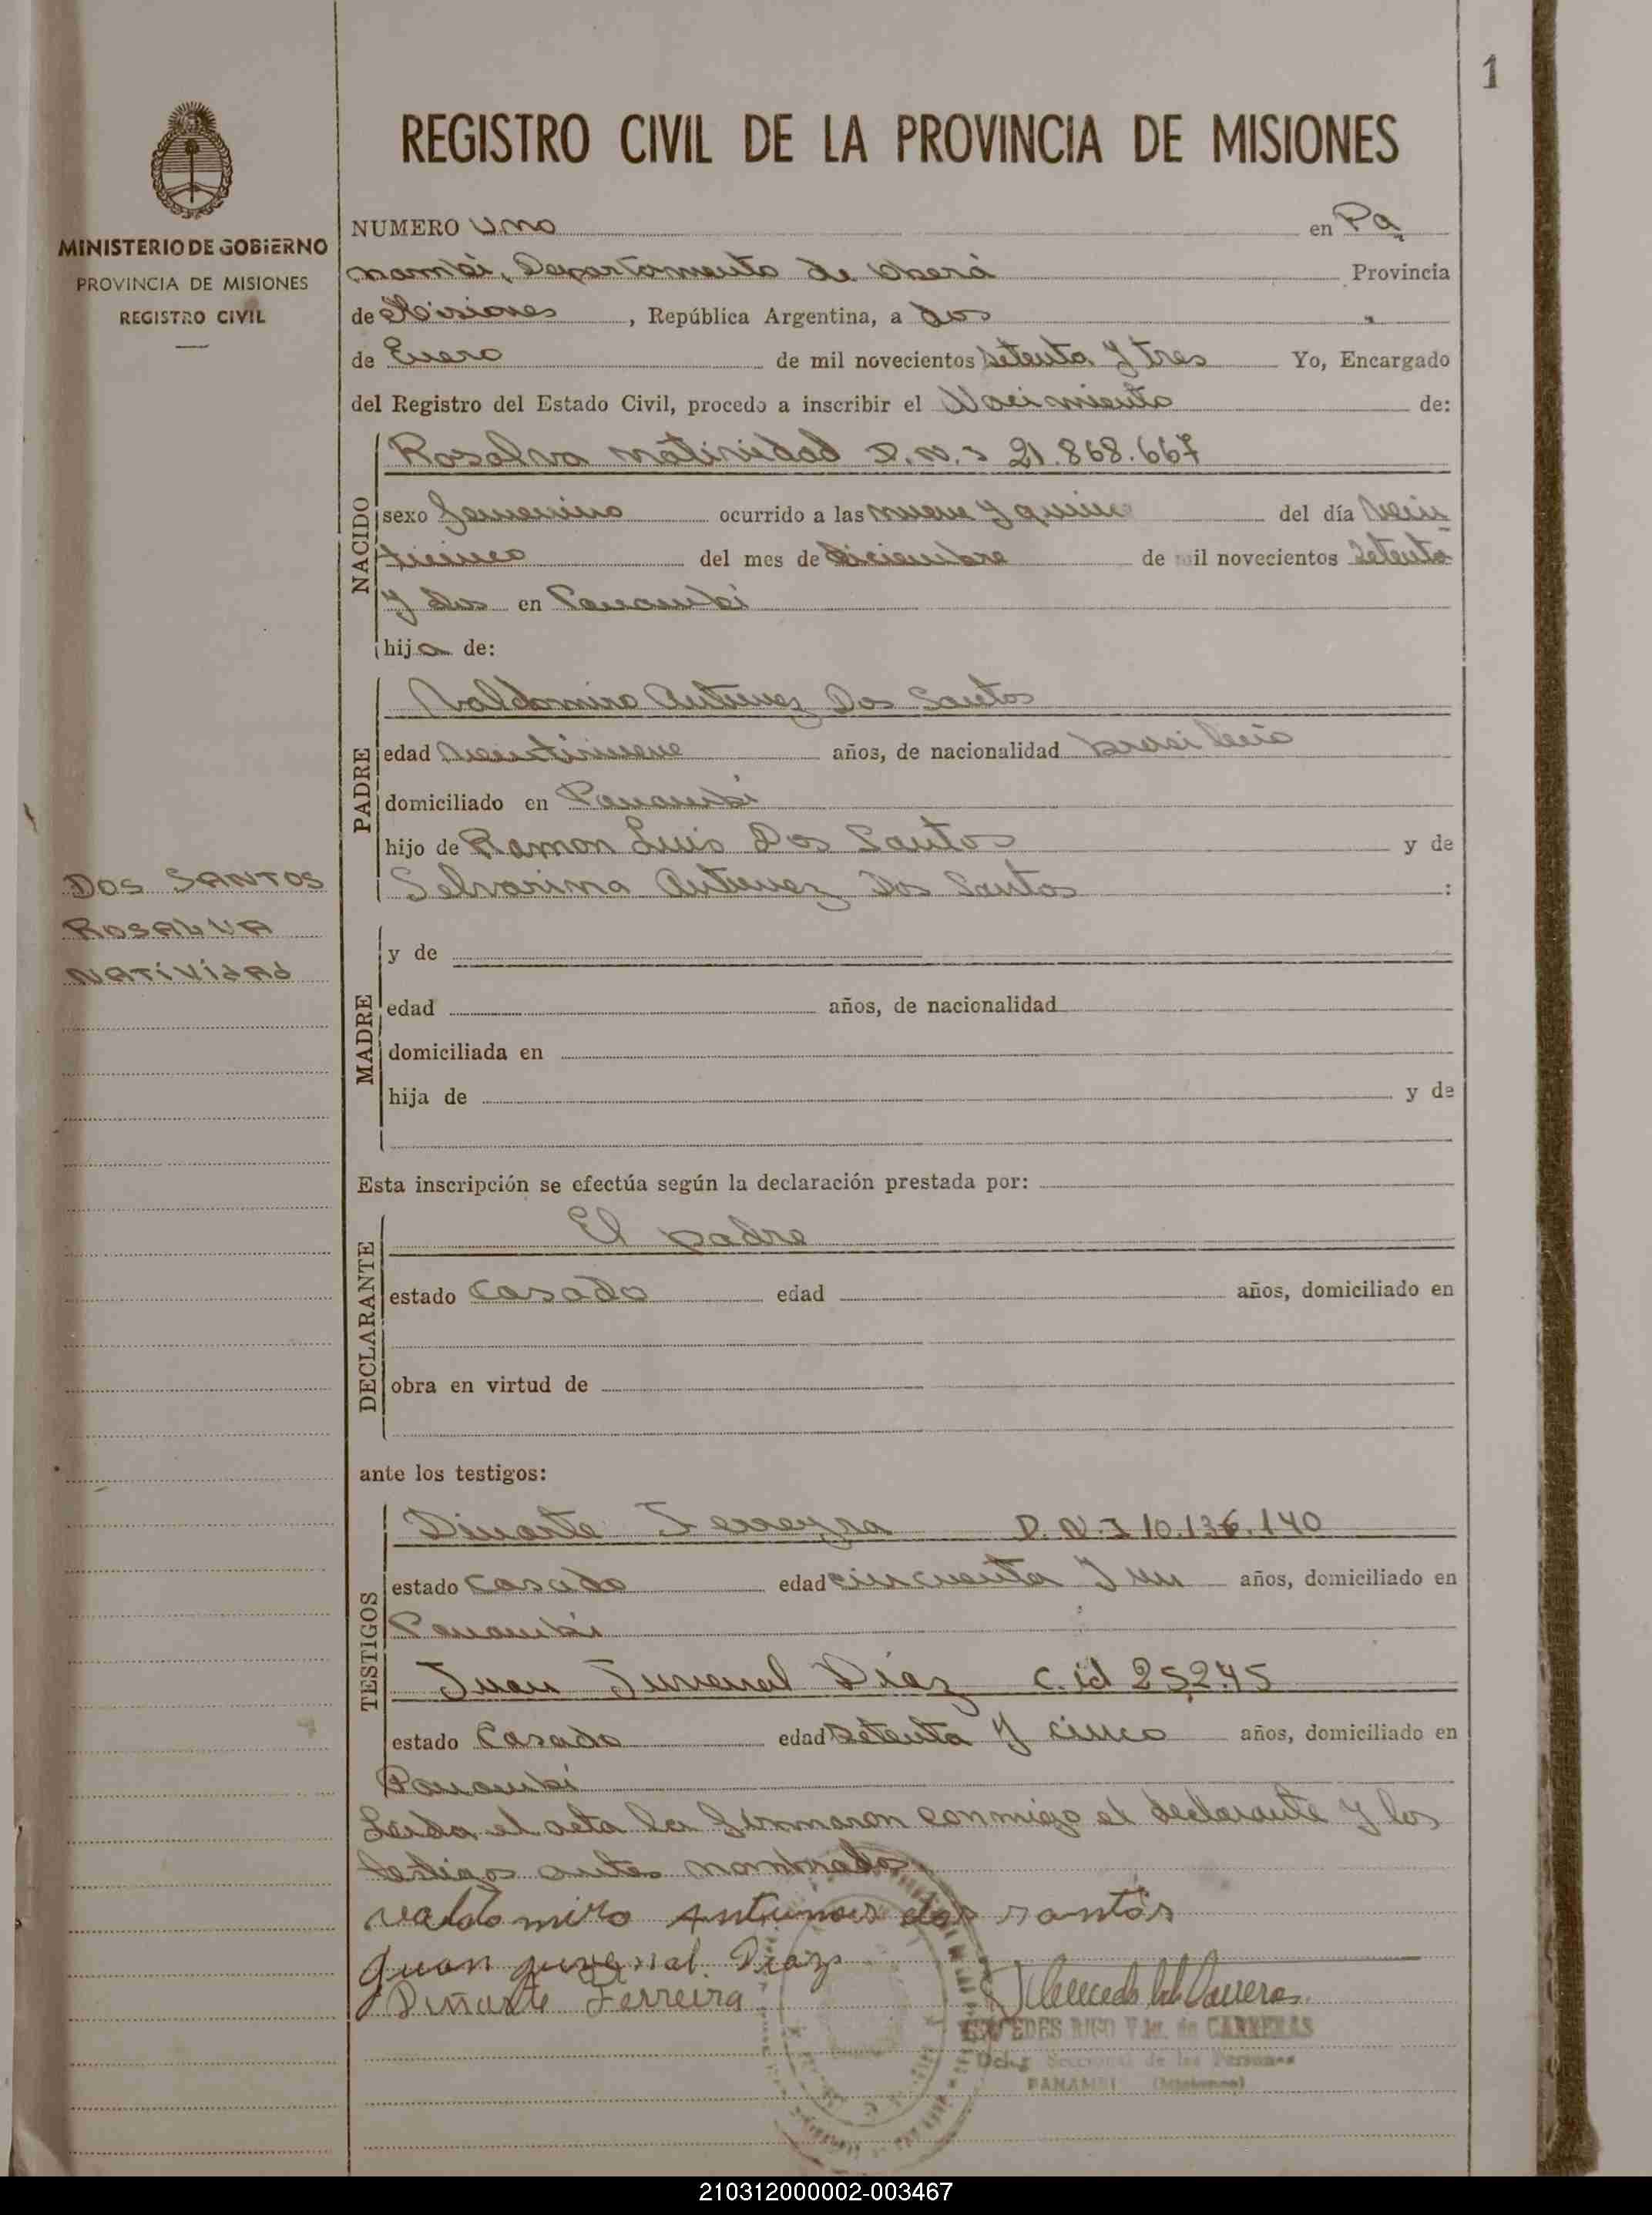 1
REGISTRO CIVIL DE LA PROVINCIA DE MISIONES
MINISTERIO DE GOBIERNO
PROVINCIA DE MISIONES
REGISTRO CIVIL
NUMERO Uno en Pa
nambí, Departamento de Oberá Provincia
de Misiones, República Argentina, a dos
de Enero de mil novecientos setenta y tres Yo, Encargado
del Registro del Estado Civil, procedo a inscribir el Nacimiento de:
NACIDO
Rosalva natividad D.N.I 21.868.667
sexo femenino ocurrido a las nueve y quince del día vein
ticinco del mes de diciembre de mil novecientos setenta
y dos en Panambí
hija de:
PADRE
Valdomiro Antunez Dos Santos
edad veintinueve años, de nacionalidad brasileño
domiciliado en Panambí
hijo de Ramon Luis Dos Santos y de
Selvarina Antunez Dos Santos :
DOS SANTOS
ROSALVA
NATIVIDAD
MADRE
y de
edad años, de nacionalidad
domiciliada en
hija de y de
Esta inscripción se efectúa según la declaración prestada por:
DECLARANTE
El padre
estado casado edad años, domiciliado en
obra en virtud de
ante los testigos:
TESTIGOS
Dinarte Ferreyra D.N.I 10.136.140
estado casado edad cincuenta y un años, domiciliado en
Panambí
Juan Juvenal Díaz C.id 25245
estado Casado edad setenta y cinco años, domiciliado en
Panambí
Leida el acta la firmaron conmigo el declarante y los
testigos antes nombrados
valdomiro Antunes dos santos
Juan juvenal Diaz
Diñarte Ferreira
RIGO Vda. de CARRERAS
Seccional de las Personas
PANAMBI (Misiones)
210312000002-003467